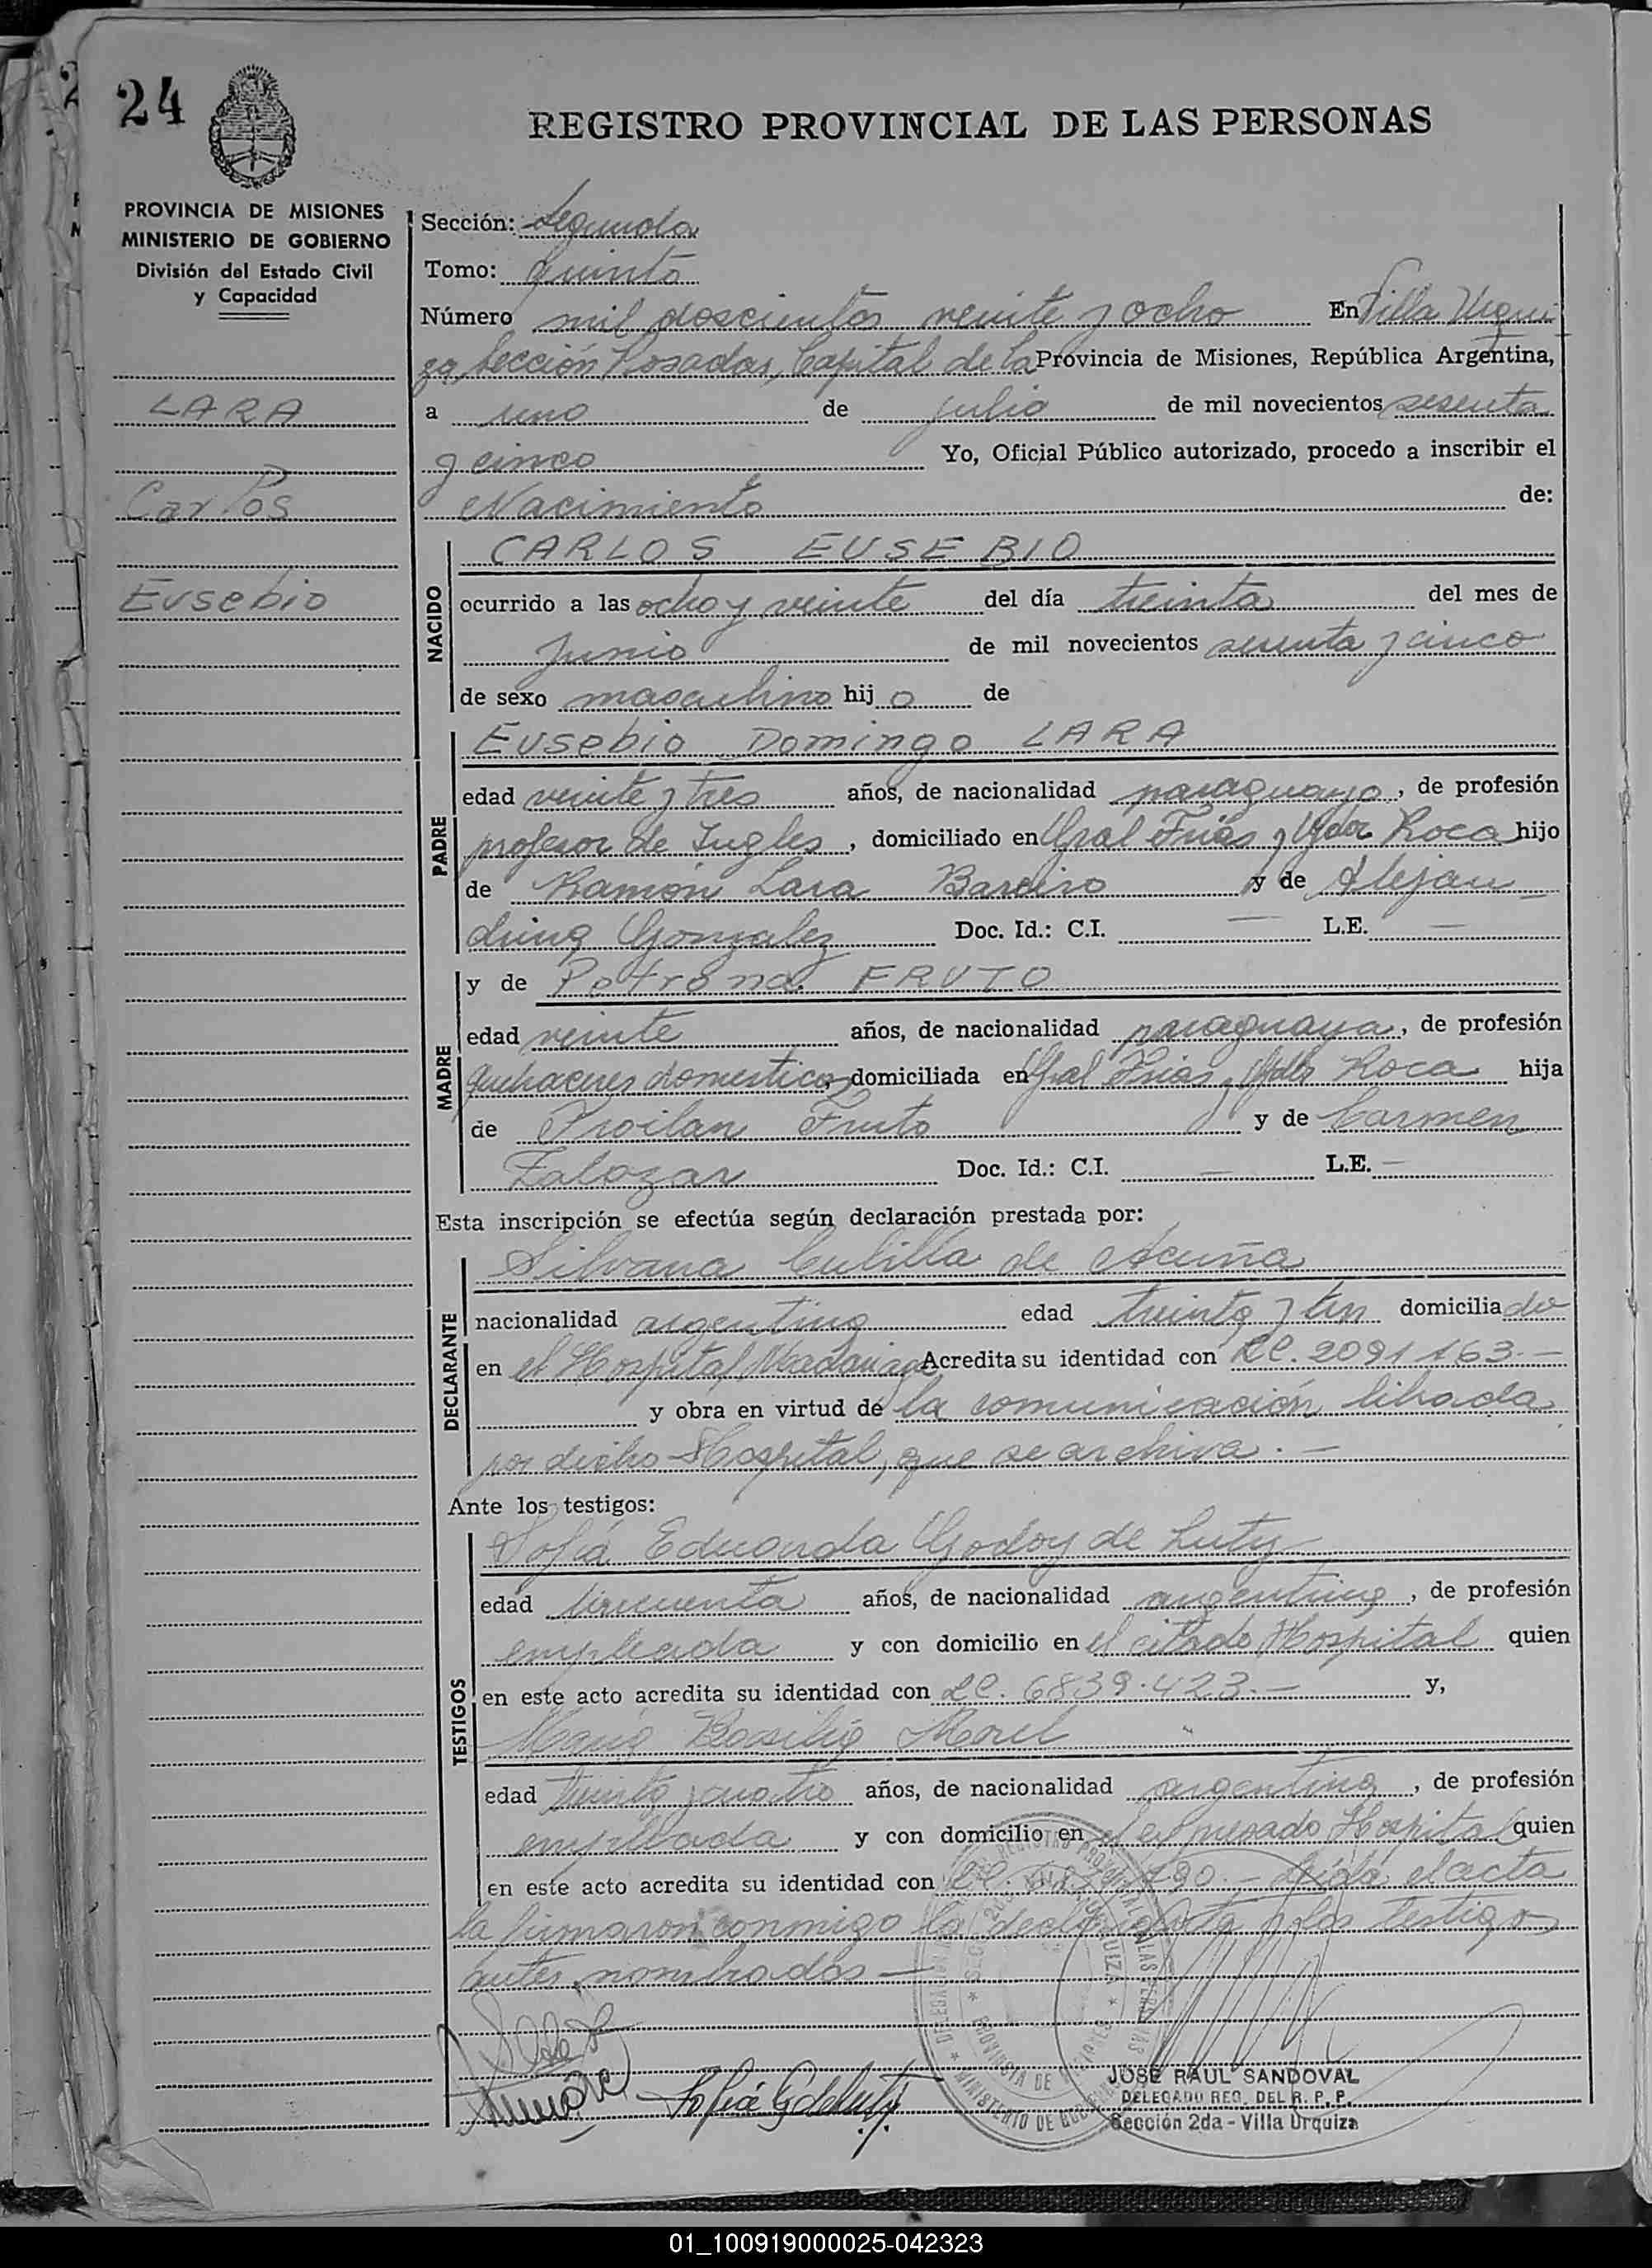 24
REGISTRO PROVINCIAL DE LAS PERSONAS
PROVINCIA DE MISIONES
MINISTERIO DE GOBIERNO
División del Estado Civil
y Capacidad
LARA
Carlos
Eusebio
Sección: Segunda
Tomo: Quinto
Número mil doscientos veinte y ocho En Villa Urqui
za, Sección Posadas, Capital de la Provincia de Misiones, República Argentina,
a uno de julio de mil novecientos sesenta
y cinco Yo, Oficial Público autorizado, procedo a inscribir el
Nacimiento de:
NACIDO
CARLOS EUSEBIO
ocurrido a las ocho y veinte del día treinta del mes de
Junio de mil novecientos sesenta y cinco
de sexo masculino hijo de
PADRE
Eusebio Domingo LARA
edad veinte y tres años, de nacionalidad paraguayo, de profesión
profesor de Ingles, domiciliado en Gral Frias y Gdor Roca hijo
de Ramón Lara Bareiro y de Alejan
drina Gonzalez Doc. Id.: C.I. — L.E. —
MADRE
y de Petrona FRUTO
edad veinte años, de nacionalidad paraguaya, de profesión
quehaceres domesticos, domiciliada en Gral Frias y Gdor Roca hija
de Froilan Fruto y de Carmen
Zalazar Doc. Id.: C.I. — L.E. —
Esta inscripción se efectúa según declaración prestada por:
DECLARANTE
Silvana Cubilla de Acuña
nacionalidad argentina edad treinta y tres domiciliada
en el Hospital Madariaga Acredita su identidad con LC. 2091163.—
y obra en virtud de la comunicación librada
por dicho Hospital, que se archiva.—
Ante los testigos:
TESTIGOS
Sofía Eduarda Godoy de Luty
edad cincuenta años, de nacionalidad argentina, de profesión
empleada y con domicilio en el citado Hospital quien
en este acto acredita su identidad con LC. 6839.423.— y,
María Basilia Morel
edad treinta y cuatro años, de nacionalidad argentina, de profesión
empleada y con domicilio en el expresado Hospital quien
en este acto acredita su identidad con LC. 790.— Leída el acta
la firmaron conmigo la declarante y los testigos
antes nombrados—
JOSE RAUL SANDOVAL
DELEGADO REG. DEL R. P. P.
Sección 2da - Villa Urquiza
01_100919000025-042323